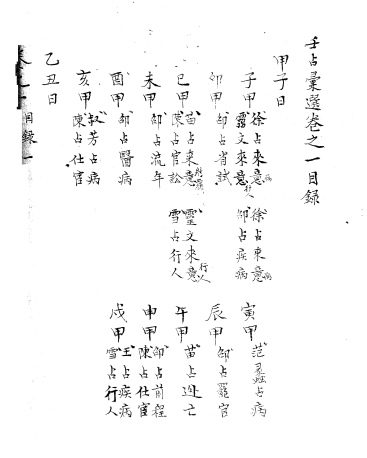 壬占彙選卷之一目録
甲子日
子甲 徐占來意病 徐占來意病
靈文來意行人 邵占疾病
寅甲 范蠡占病
卯甲 邵占省試
辰甲 邵占罷官
巳甲 苗占來意 靈文來意行人
陳占官訟 雪占行人
午甲 苗占逃亡
未甲 邵占流年
申甲 邵占前程
陳占仕宦
酉甲 邵占醫病
戌甲 王占疾病
雪占行人
亥甲 叔芳占病
陳占仕宦
乙丑日
目録 一